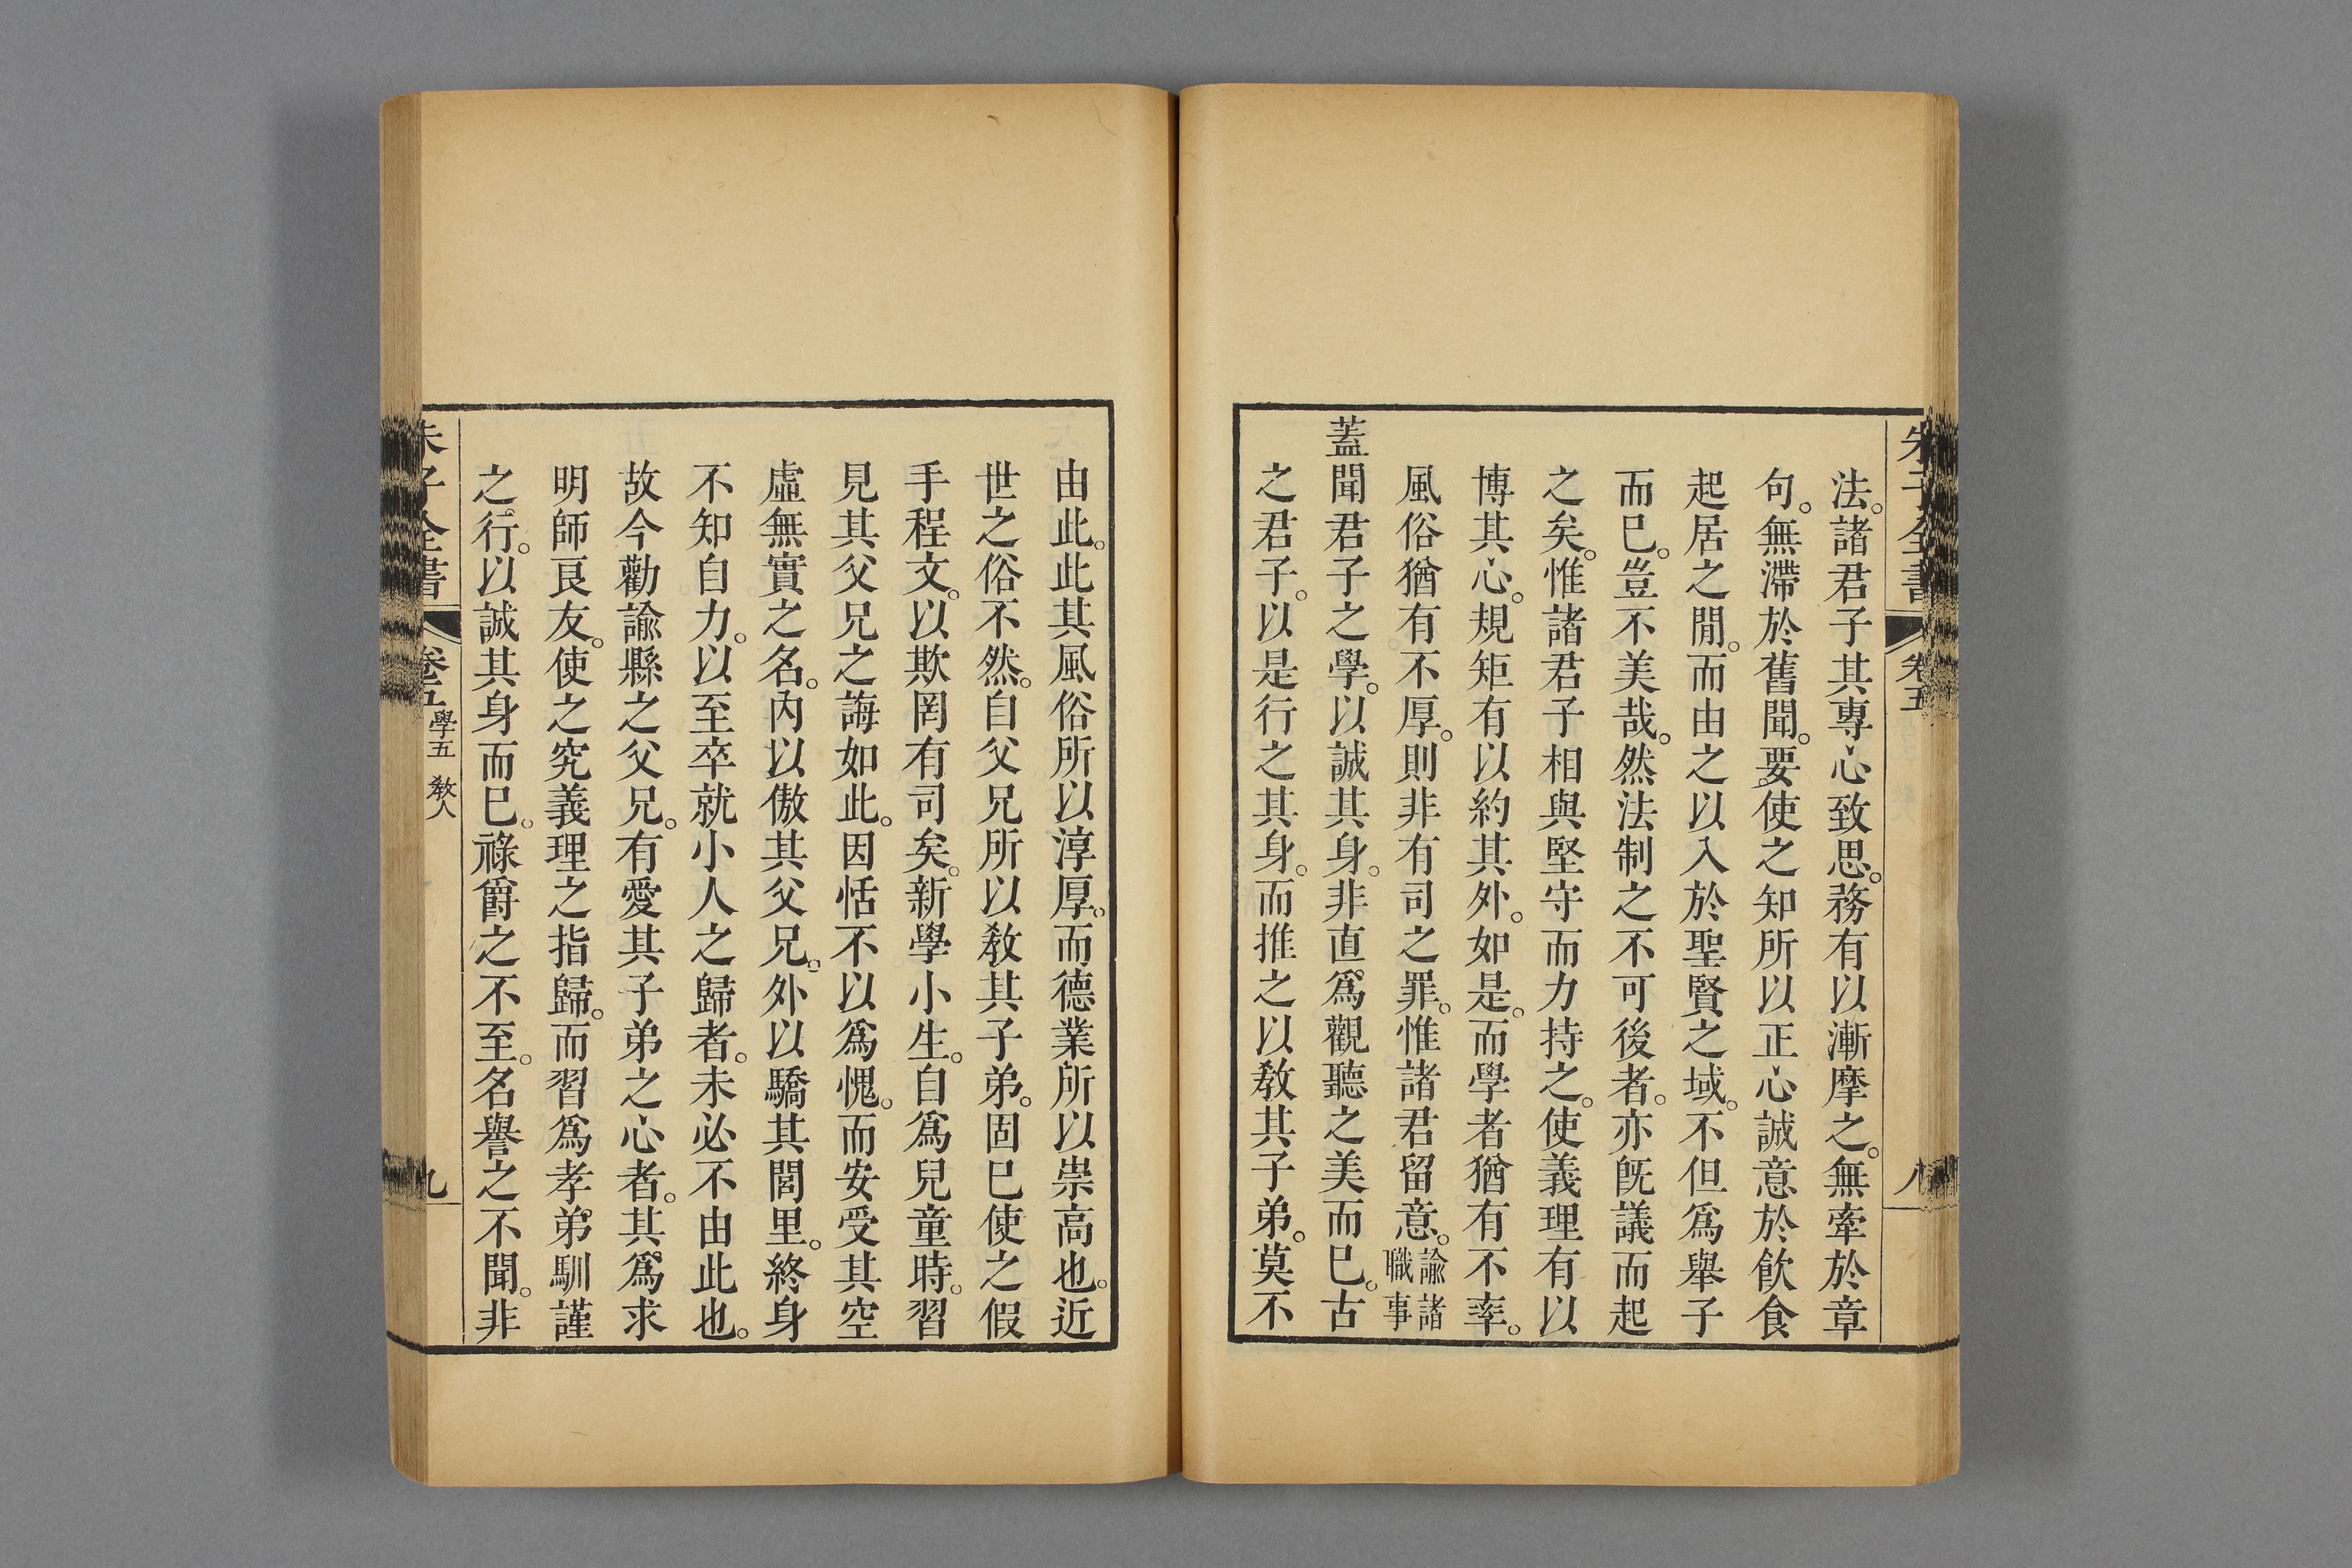 朱子全書 卷五 八
法。諸君子其專心致思。務有以漸摩之。無牽於章
句。無滯於舊聞。要使之知所以正心誠意於飮食
起居之閒。而由之以入於聖賢之域。不但爲舉子
而已。豈不美哉。然法制之不可後者。亦旣議而起
之矣。惟諸君子相與堅守而力持之。使義理有以
博其心。規矩有以約其外。如是。而學者猶有不率。
風俗猶有不厚。則非有司之罪。惟諸君留意。諭諸職事
蓋聞君子之學。以誠其身。非直爲觀聽之美而已。古
之君子。以是行之其身。而推之以敎其子弟。莫不
由此。此其風俗所以淳厚。而德業所以崇高也。近
世之俗不然。自父兄所以敎其子弟。固已使之假
手程文。以欺罔有司矣。新學小生。自爲兒童時。習
見其父兄之誨如此。因恬不以爲愧。而安受其空
虛無實之名。內以傲其父兄。外以驕其閭里。終身
不知自力。以至卒就小人之歸者。未必不由此也。
故今勸諭縣之父兄。有愛其子弟之心者。其爲求
明師良友。使之究義理之指歸。而習爲孝弟馴謹
之行。以誠其身而已。祿爵之不至。名譽之不聞。非
朱子全書 卷五 學五 敎人 九